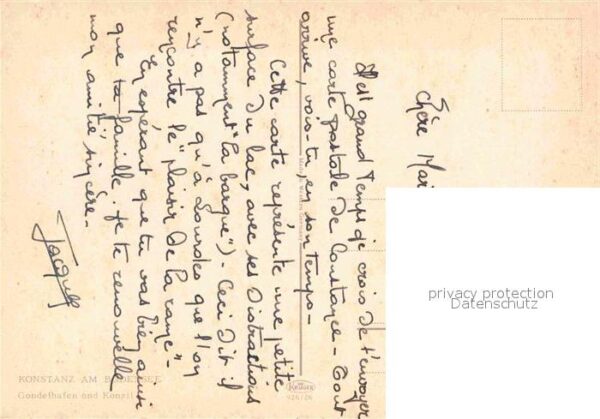 Chère Mar
Il est grand temps je crois de t'envoyer
une carte postale de Constance - Tout
arrive, vois-tu, en son temps -
Cette carte représente une petite
surface du lac, avec ses distractions
(notamment "la barque") - Ceci dit il
n'y a pas qu'à Lourdes que l'on
rencontre le "plaisir de la rame" -
En espérant que tu vas bien ainsi
que ta famille. Je te renouvelle
mon amitié sincère -
Jacques
KONSTANZ AM BODENSEE
Gondelhafen und Konzil
926/26
privacy protection
Datenschutz